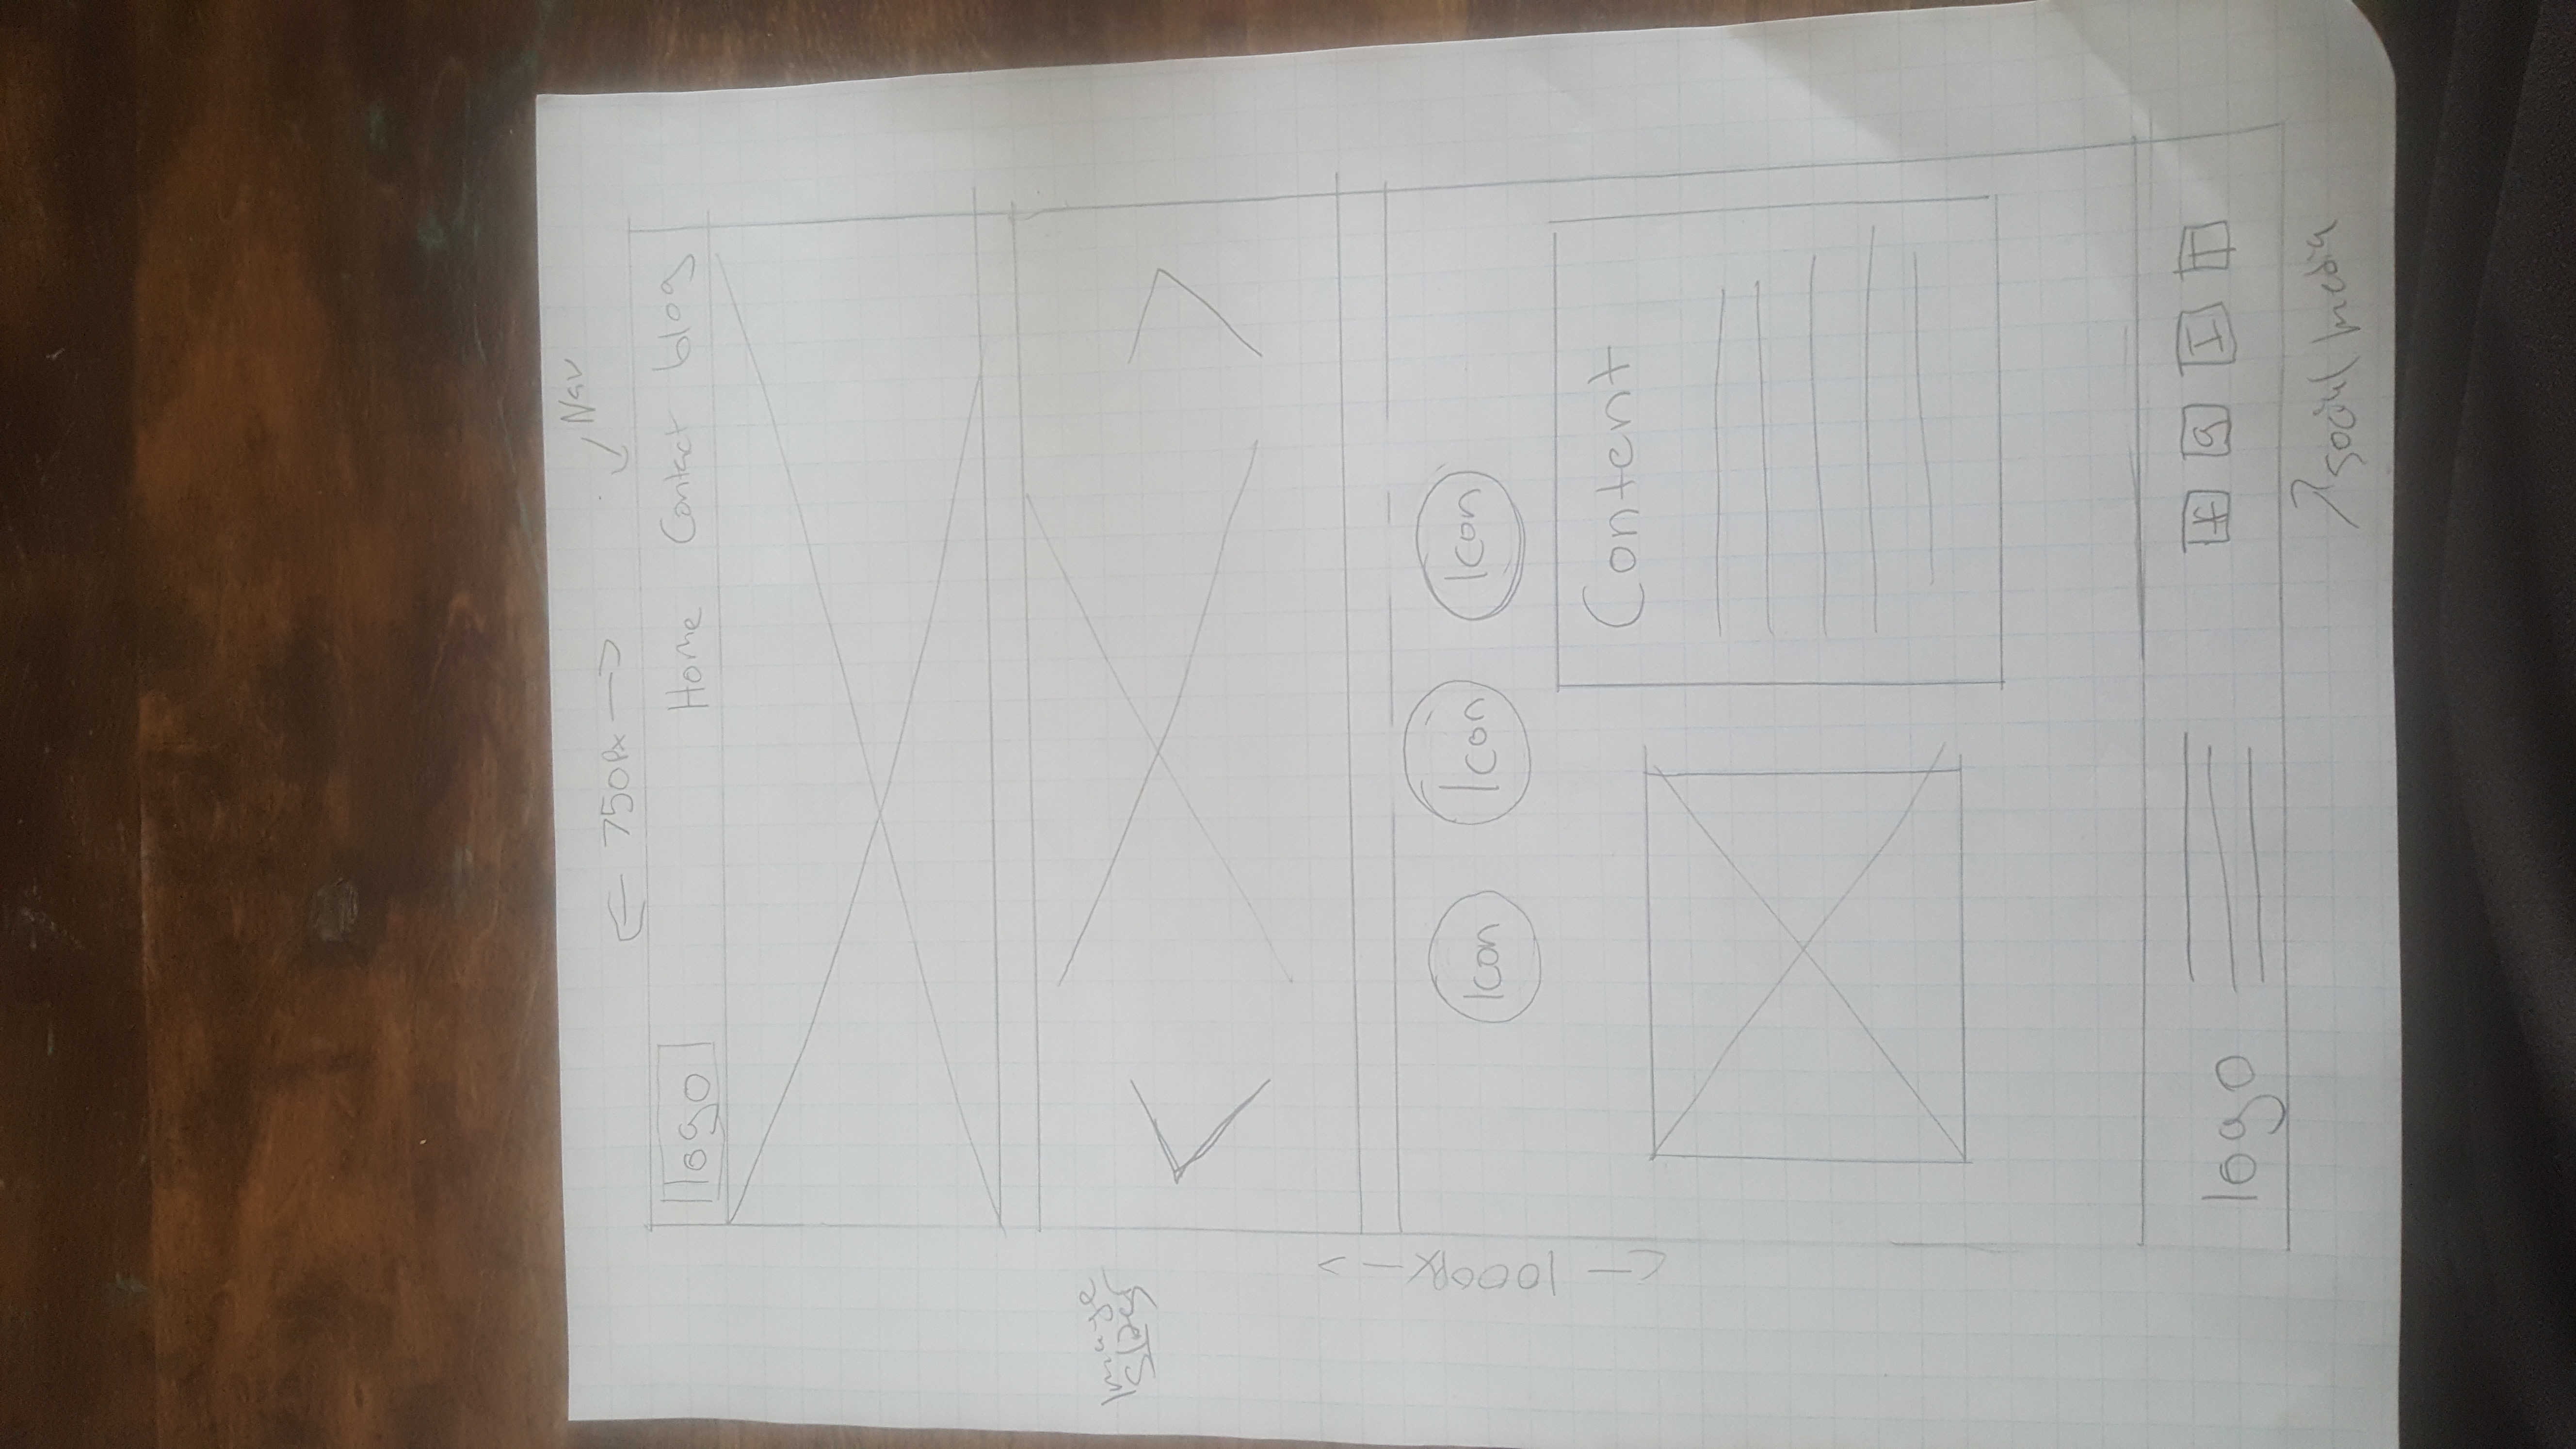 Nav
750px
logo Home Contact blog
Image
Slider
1000px
Icon Icon Icon
Content
logo f g I T
social media